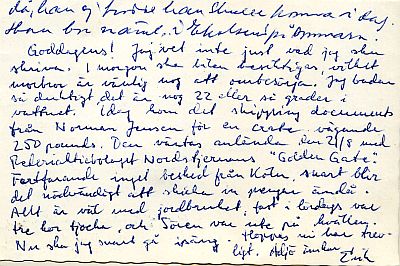 då han ej trodde han skulle komma i dag.
Han bor näml. i Ekolsund på sommaren.
Goddagens! Jag vet inte just vad jag ska
skriva. I morgon ska bilen besiktigas vilket
morbror är vänlig nog att ombesörja. Jag badar
så duktigt det är nog 22 eller så grader i
vattnet. Idag kom det shipping documents
från Norman Jensen för en crate vägande
250 pounds. Den väntas anlända den 21/8 med
Rederiaktiebolaget Nordstjernans "Golden Gate".
Fortfarande inget besked från Köln, snart blir
det nödvändigt att skicka in pengar ändå.
Allt är väl med jordbruket, fast i lördags var
tre kor tjocka, och Sören var ute på kvällen.
Nu ska jag snart gå isäng. Hoppas ni har trev-
ligt. Adjö önskar Erik